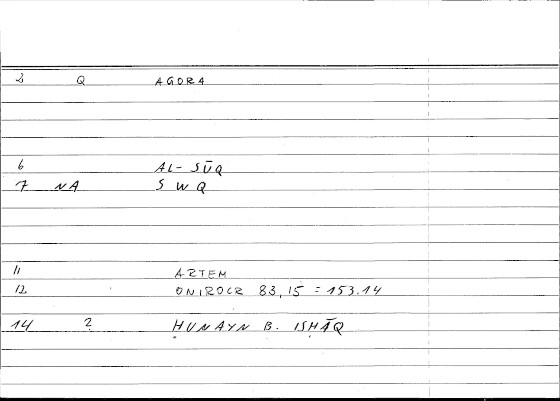 3 Q AGORA
6 AL-SŪQ
7 NA SWQ
11 ARTEM
12 ONIROCR 83,15 = 153.14
14 2 ḤUNAYN B. ISḤĀQ